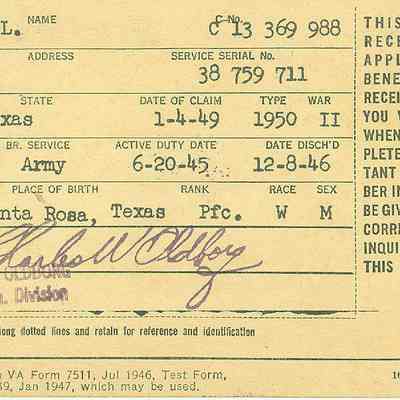 NAME
C-No.
L.
C 13 369 988
ADDRESS
SERVICE SERIAL No.
38 759 711
STATE
DATE OF CLAIM
TYPE
WAR
xas
1-4-49
1950
II
BR. SERVICE
ACTIVE DUTY DATE
DATE DISCH'D
Army
6-20-45
12-8-46
PLACE OF BIRTH
RANK
RACE
SEX
nta Rosa, Texas
Pfc.
W
M
Charles W Oldborg
OLDBORG
n. Division
long dotted lines and retain for reference and identification
VA Form 7511, Jul 1946, Test Form,
39, Jan 1947, which may be used.
THIS
RECE
APPL
BENE
RECEI
YOU W
WHEN
PLETE
TANT
BER IN
BE GIV
CORRE
INQUI
THIS
16